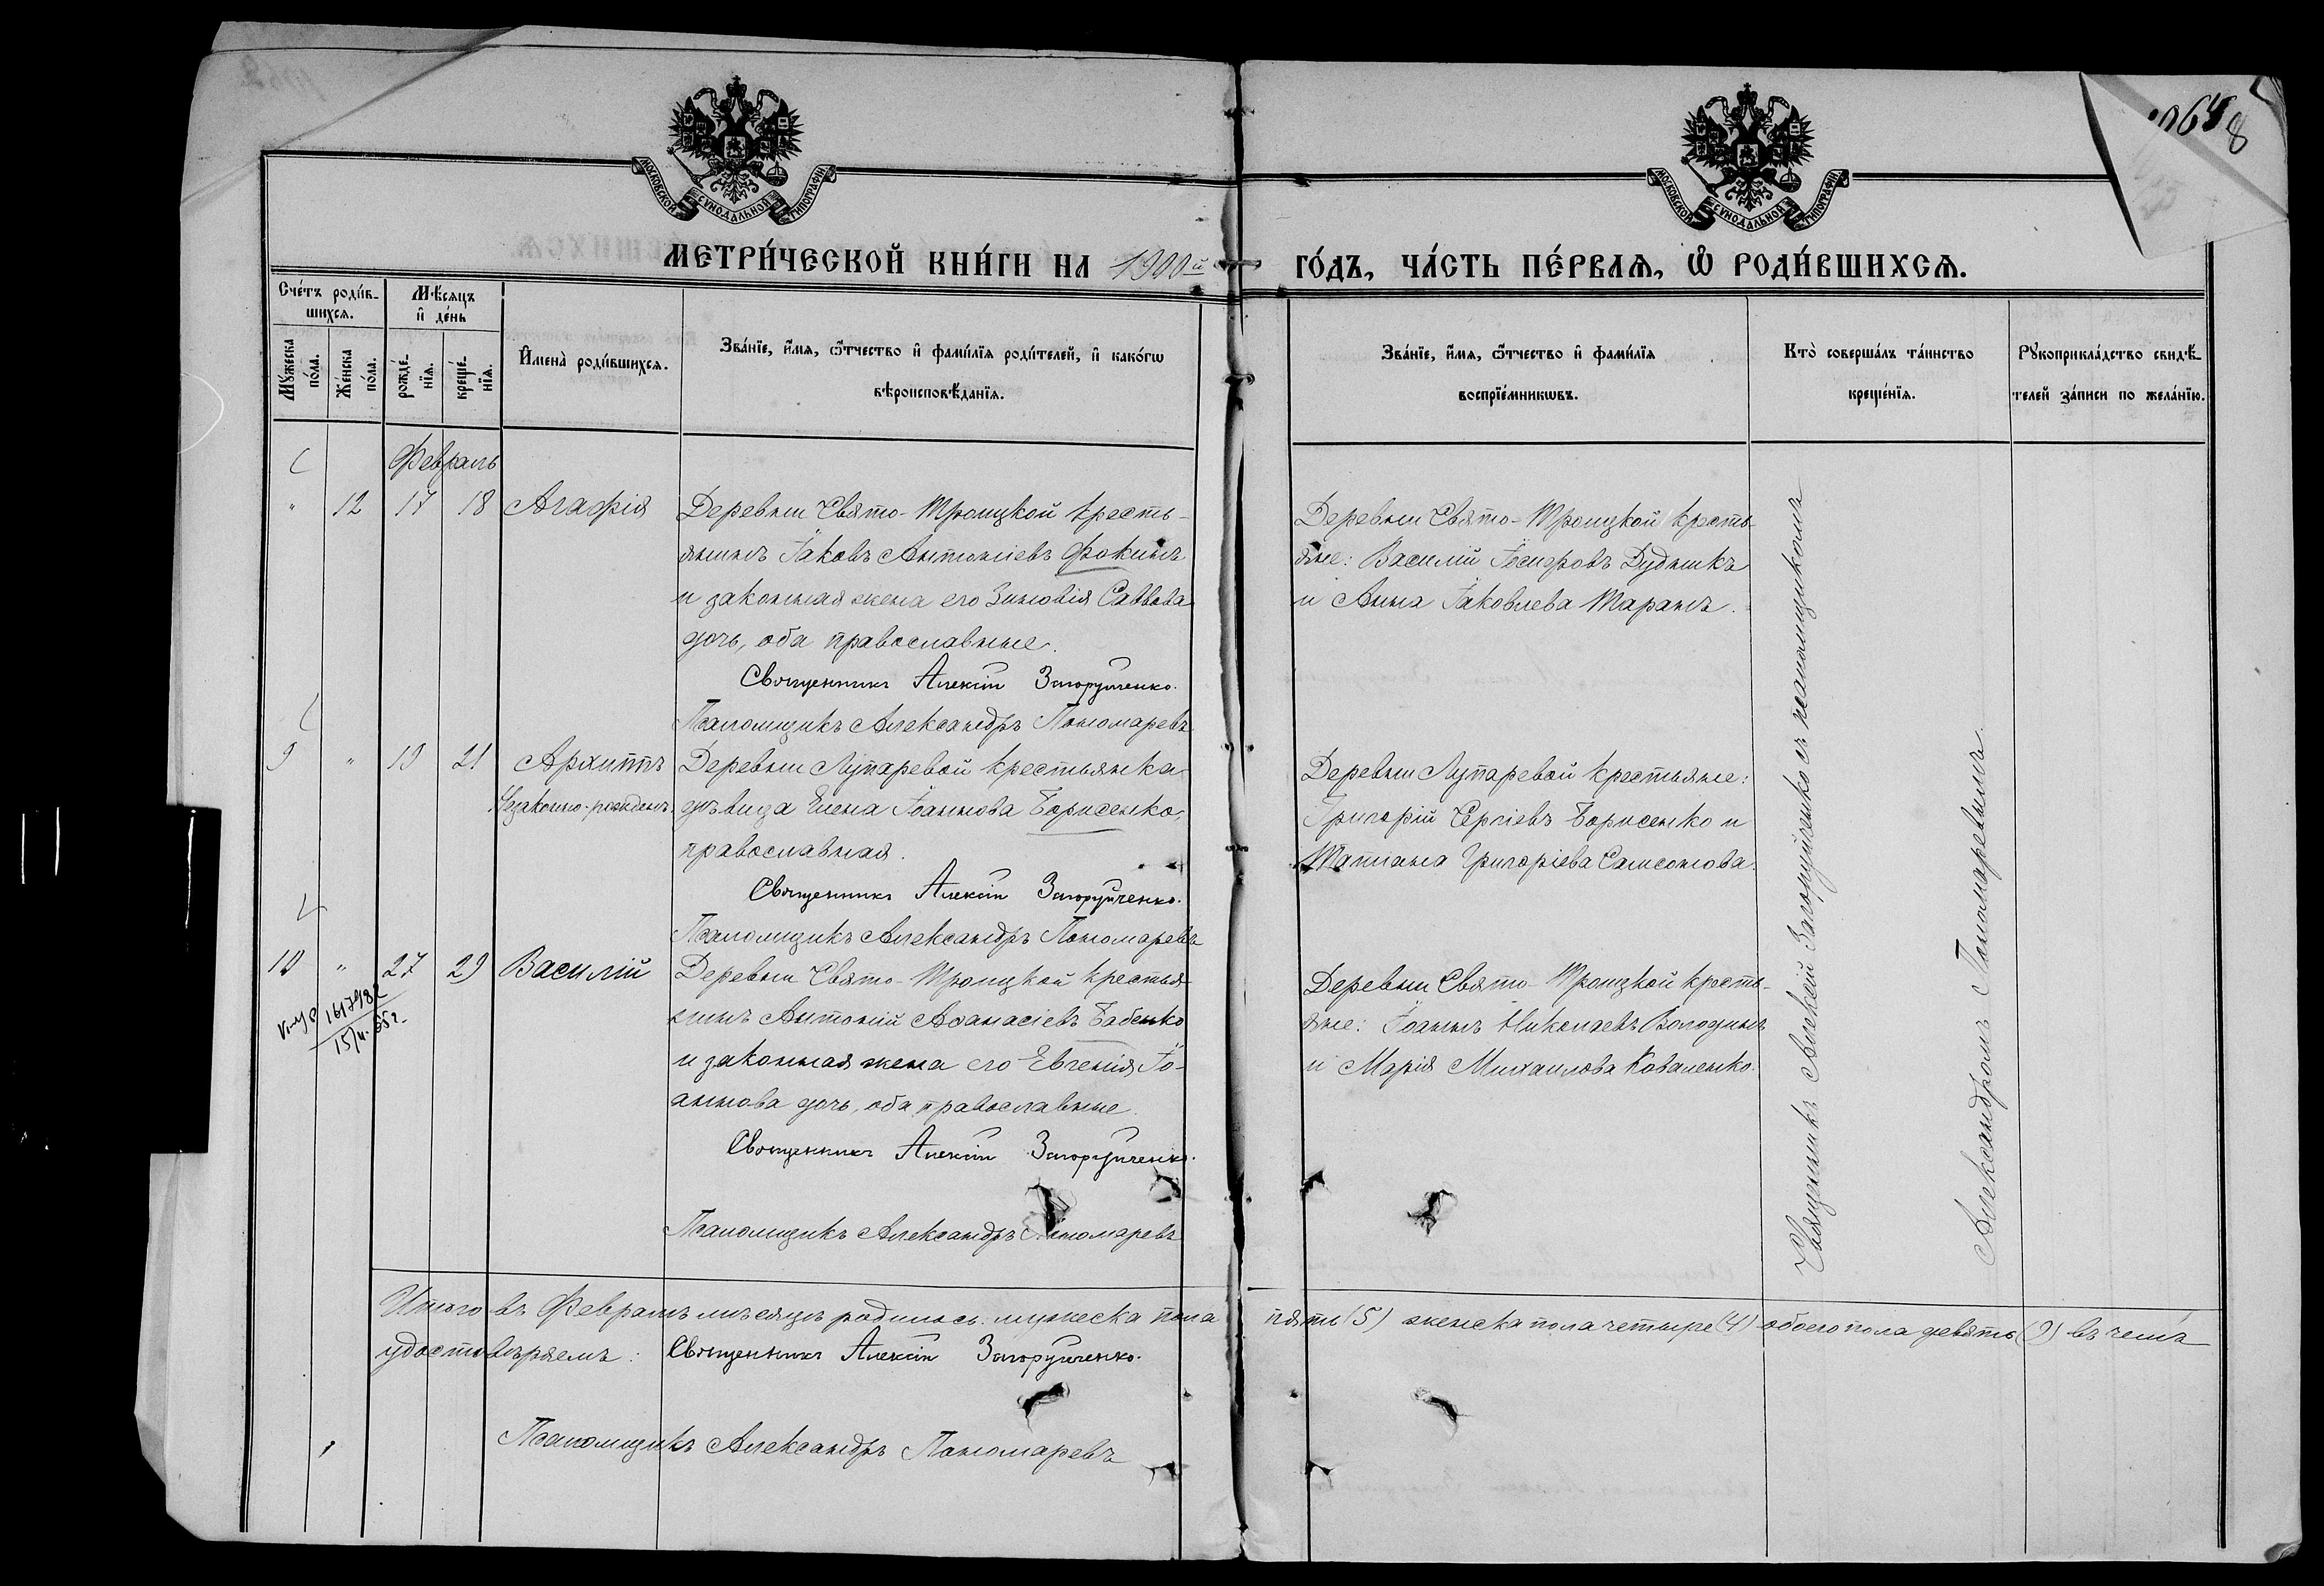 10648
МОСКОВСКОЙ СѴНОДАЛЬНОЙ ТИПОГРАФІИ
МОСКОВСКОЙ СѴНОДАЛЬНОЙ ТИПОГРАФІИ
МЕТРИ́ЧЕСКОЙ КНИ́ГИ НА 1900й ГО́ДЪ, ЧА́СТЬ ПЕ́РВАѦ, Ѡ РОДИ́ВШИХСѦ.
Сче́тъ роди́в-
шихсѧ.
Мꙋ́жеска по́ла.
Же́нска по́ла.
Мѣ́сѧцъ
и҆ де́нь
рожде́-
нїѧ.
креще́-
нїѧ.
И҆мена̀ роди́вшихсѧ.
Зва́нїе, и҆́мѧ, ѻ҆́тчество и҆ фами́лїѧ роди́телей, и҆ како́гѡ
вѣроисповѣ́данїѧ.
Зва́нїе, и҆́мѧ, ѻ҆́тчество и҆ фами́лїѧ
воспрїе́мникѡвъ.
Кто̀ соверша́лъ та́инство
креще́нїѧ.
Рꙋкоприкла́дство свидѣ́-
телей за́писи по жела́нїю.
Февраль
" 12 17 18 Агафія
Деревни Свято-Троицкой кресть-
янинъ Іаковъ Антоніевъ Фокинъ
и законная жена его Зиновія Саввова
дочь, оба православные.
Священникъ Алексій Загоруйченко.
Псаломщикъ Александръ Пономаревъ
Деревни Свято-Троицкой кресть-
яне: Василій Іосифовъ Дудникъ
и Анна Іаковлева Таранъ.
9 " 19 21 Архиппъ
Незаконно-рожденъ.
Деревни Лупаревой крестьянка
дѣвица Елена Іоаннова Борисенко,
православная.
Священникъ Алексій Загоруйченко.
Псаломщикъ Александръ Пономаревъ
Деревни Лупаревой крестьяне:
Григорій Сергіевъ Борисенко и
Татіана Григоріева Самсонова.
10 " 27 29 Василій
161798
15/4-55г.
Деревни Свято-Троицкой крестья-
нинъ Антоній Аѳанасіевъ Бабенко
и законная жена его Евгенія Іо-
аннова дочь, оба православные.
Священникъ Алексій Загоруйченко.
Псаломщикъ Александръ Пономаревъ
Деревни Свято-Троицкой кресть-
яне: Іоаннъ Николаевъ Володинъ
и Марія Михаилова Коваленко.
Священникъ Алексій Загоруйченко съ псаломщикомъ
Александромъ Пономаревымъ.
Итого въ Февралѣ мѣсяцѣ родилось: мужеска пола пять (5) женска пола четыре (4) обоего пола девять (9) въ чемъ
удостовѣряемъ: Священникъ Алексій Загоруйченко.
Псаломщикъ Александръ Пономаревъ